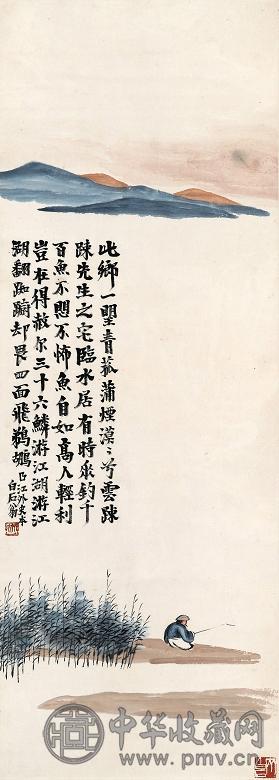 此鄉一望青菰蒲煙漠〻兮雲疎
疎先生之宅臨水居有時垂釣千
百魚不悶不怖魚自如高人輕利
豈在得赦尔三十六鱗游江湖游江
湖翻踟躕却畏四面飛鵜鶘
白石翁
中华收藏网
www.pmv.cn